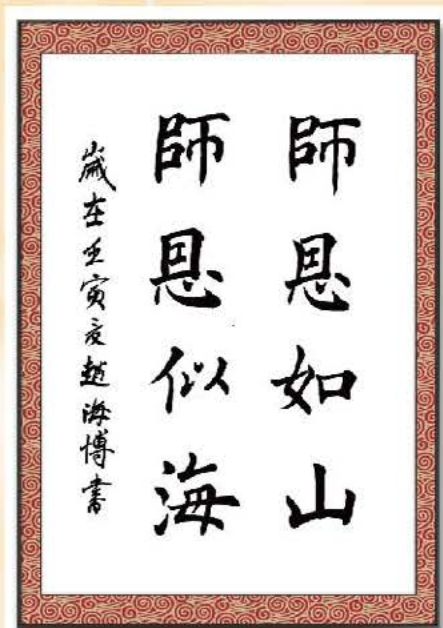 師恩如山
師恩似海
歲在壬寅夏趙海博書